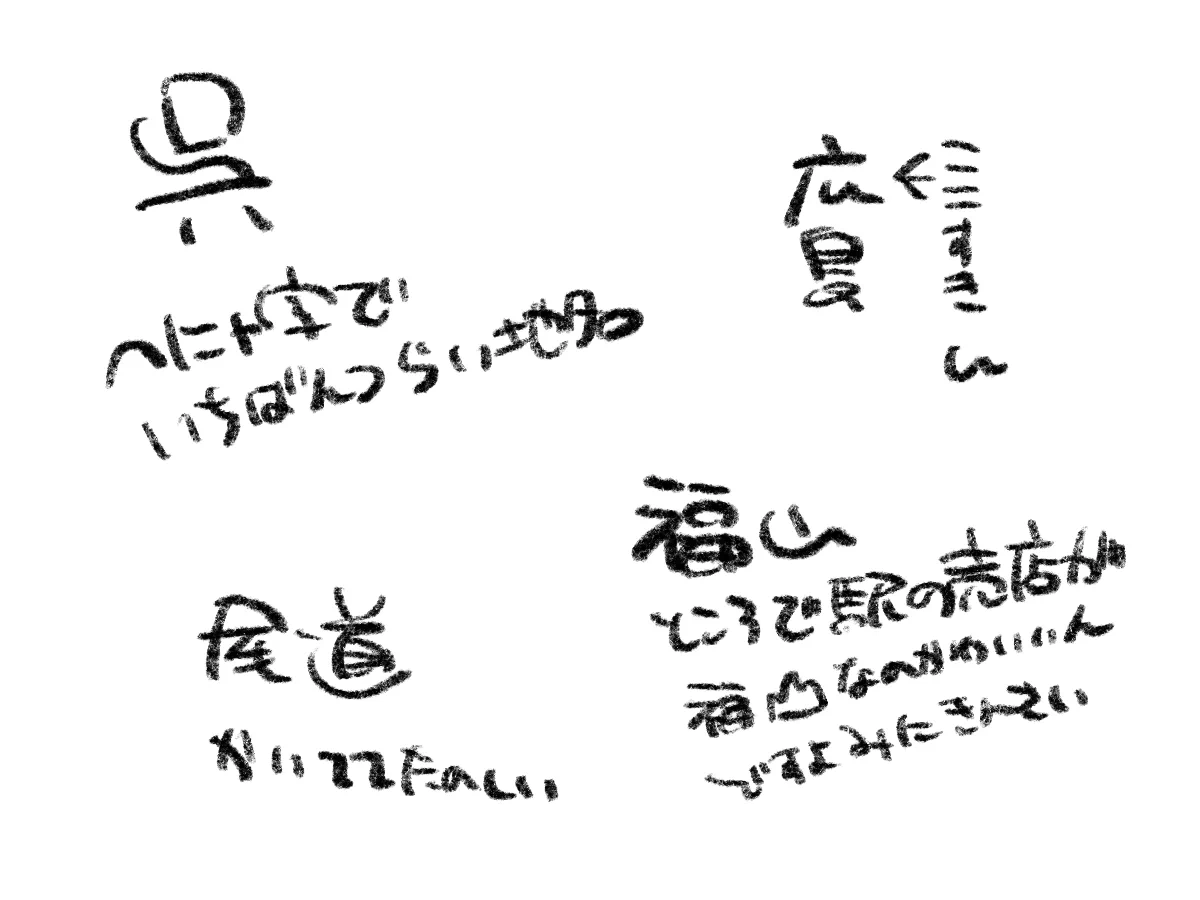 呉
へにゃ字で
いちばんつらい地名
広島
←
ここすき
尾道
かいててたのしい
福山
ところで駅の売店が
福山なのかわいいん
ですよみにきんさい